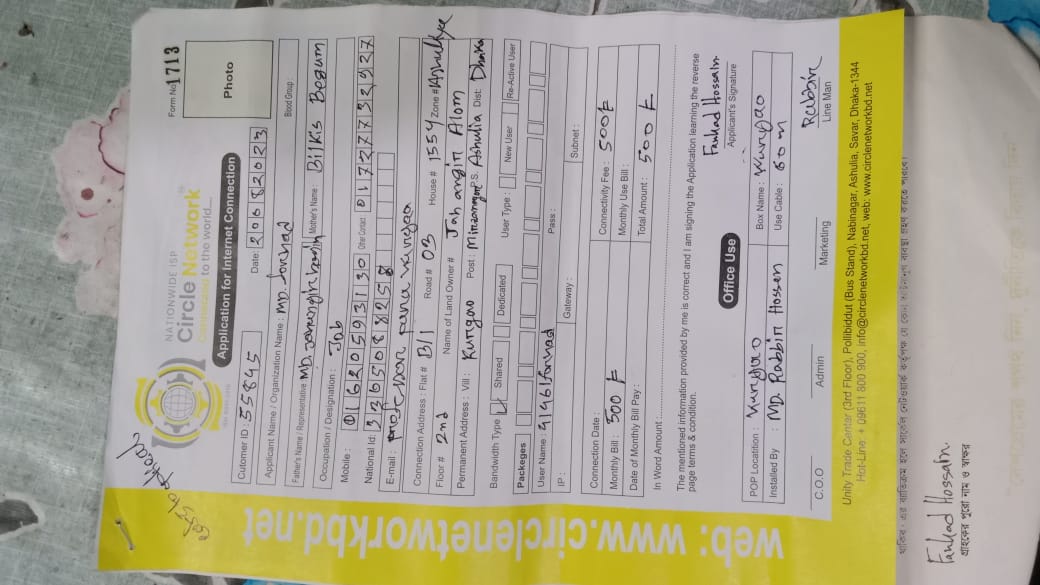 Form No 1713
NATIONWIDE ISP
Circle Network
Connected to the world....
Application for Internet Connection
Photo
Cutomer ID : 55845 Date: 20082023
Applicant Name / Organization Name : MD. Forhad
Father's Name / Representative MD. Mother's Name : Bilkis Begum Blood Group :
Occupation / Designation : Job
Mobile : 01620593130 Other Contact 01727732927
National Id: 3305088258
E-mail :
Connection Address : Flat # B/1 Road # 03 House # 1554 Zone # Ashuliya
Floor # 2nd Name of Land Owner # Jahangir Alom
Permanent Address : Vill : Kurgao Post : P.S. Ashulia Dist: Dhaka
Bandwidth Type Shared Dedicated User Type : New User Re-Active User
Packeges
User Name : Pass :
IP : Gateway : Subnet :
Connection Date : Connectivity Fee : 500
Monthly Bill : 500 Monthly Use Bill :
Date of Monthly Bill Pay : Total Amount : 500
In Word Amount:
The mentioned information provided by me is correct and I am signing the Application learning the reverse
page terms & condition.
Farhad Hossain
Applicant's Signature
Office Use
POP Locatition : Kurgao Box Name : Kurgao
Installed By : MD. Rabbin Hossen Use Cable : 60m
Rabbin
C.O.O Admin Marketing Line Man
Unity Trade Center (3rd Floor), Pollibiddut (Bus Stand), Nabinagar, Ashulia, Savar, Dhaka-1344
Hot-Line: + 09611 800 900, info@circlenetworkbd.net, web: www.circlenetworkbd.net
web: www.circlenetworkbd.net
Farhad Hossain
গ্রাহকের পুরো নাম ও স্বাক্ষর